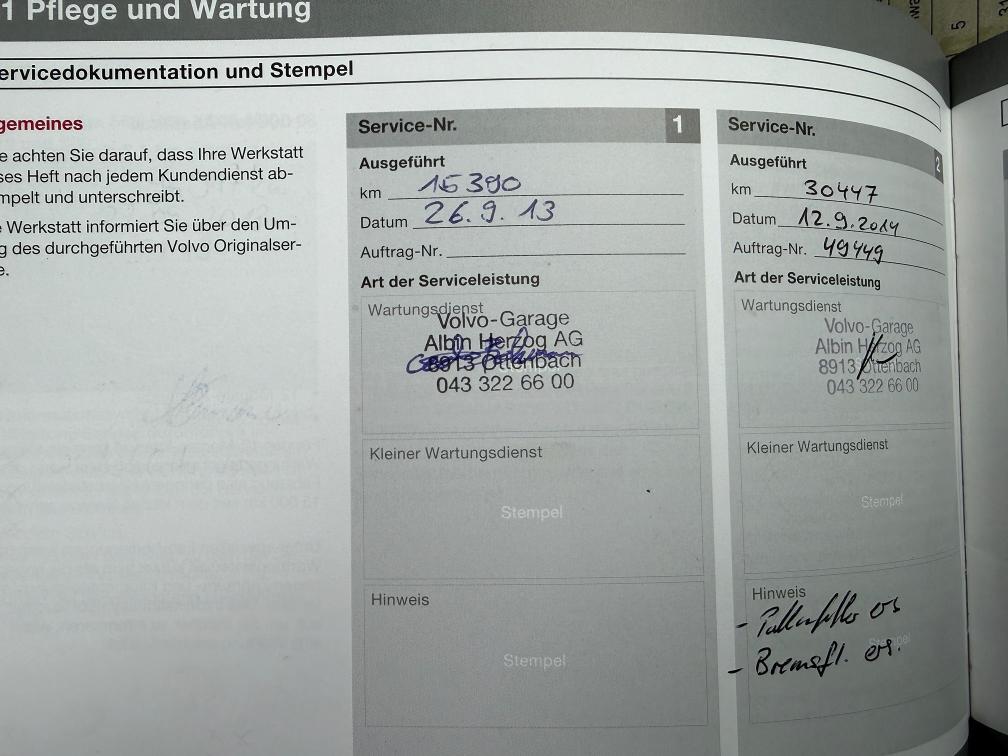 1 Pflege und Wartung
ervicedokumentation und Stempel
gemeines
e achten Sie darauf, dass Ihre Werkstatt
ses Heft nach jedem Kundendienst ab-
mpelt und unterschreibt.
e Werkstatt informiert Sie über den Um-
g des durchgeführten Volvo Originalser-
e.
Service-Nr. 1
Ausgeführt
km 15390
Datum 26.9.13
Auftrag-Nr.
Art der Serviceleistung
Wartungsdienst
Volvo-Garage
Albin Herzog AG
8913 Ottenbach
043 322 66 00
Kleiner Wartungsdienst
Stempel
Hinweis
Stempel
Service-Nr. 2
Ausgeführt
km 30447
Datum 12.9.2014
Auftrag-Nr. 49449
Art der Serviceleistung
Wartungsdienst
Volvo-Garage
Albin Herzog AG
8913 Ottenbach
043 322 66 00
Kleiner Wartungsdienst
Stempel
Hinweis
- Pollenfilter ers
Stempel
- Bremsfl. ers.
5